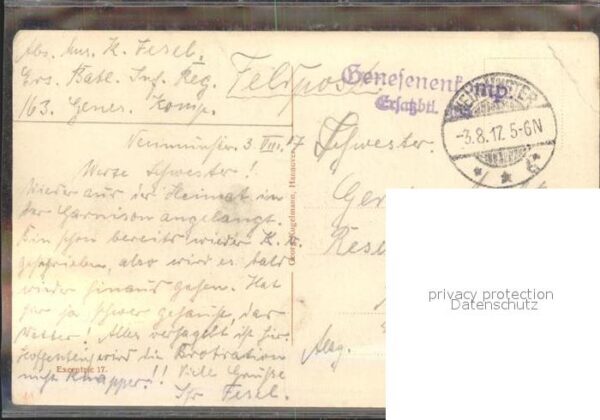 Abs. Mus. K. Fesel.
Ers. Batl. Inf. Reg.
163. Genes. Komp.
Feldpost
Genesenenkomp.
Ersatzbtl.
NEUMÜNSTER
-3.8.17.5-6N
Neumünster. 3. VIII. 17
Werte Schwester!
Wieder aus der Heimat in
der Garnison angelangt.
Bin schon bereits wieder K. v.
geschrieben, also wird es bald
wieder hinaus gehen. Hat
ja schwer gehaust, das
Wetter! Alles verhagelt ist hier.
Hoffentlich wird die Brotration
nicht knapper!! Viele Grüße
Ihr Fesel.
Excentric 17.
Georg Kugelmann, Hannover
Schwester.
Rese
privacy protection
Datenschutz